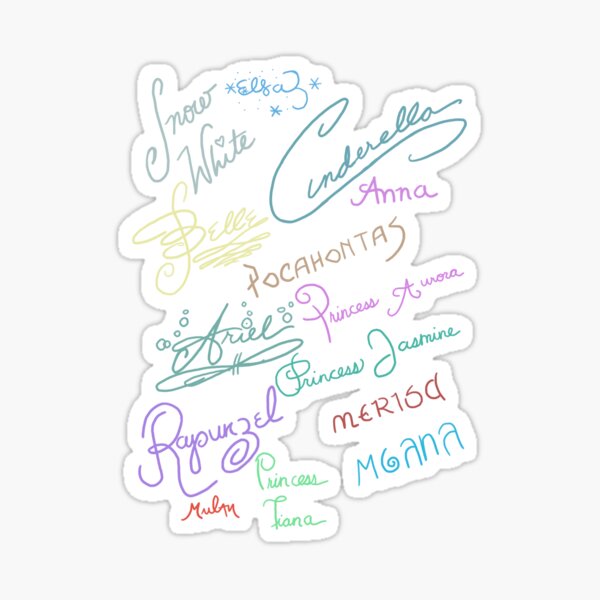 Snow
White
Elsa
Cinderella
Anna
Belle
POCAHONTAS
Princess Aurora
Ariel
Princess Jasmine
MERISA
Rapunzel
MOANA
Princess
Tiana
Mulan